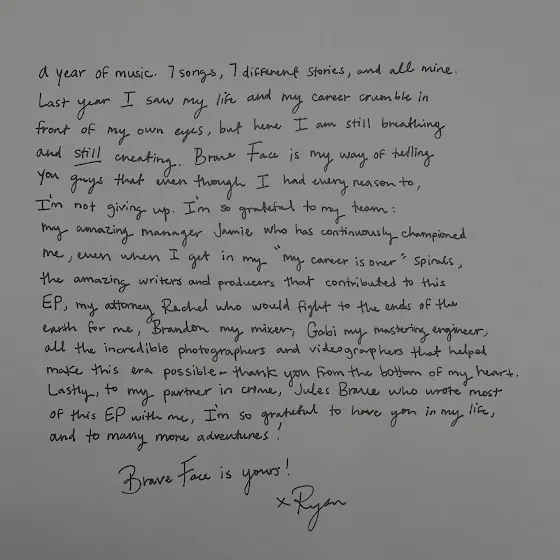 a year of music. 7 songs, 7 different stories, and all mine.
Last year I saw my life and my career crumble in
front of my own eyes, but here I am still breathing
and still creating. Brave Face is my way of telling
you guys that even though I had every reason to,
I'm not giving up. I'm so grateful to my team:
my amazing manager Jamie who has continuously championed
me, even when I get in my "my career is over" spirals,
the amazing writers and producers that contributed to this
EP, my attorney Rachel who would fight to the ends of the
earth for me, Brandon my mixer, Gabi my mastering engineer,
all the incredible photographers and videographers that helped
make this era possible - thank you from the bottom of my heart.
Lastly, to my partner in crime, Jules Brave who wrote most
of this EP with me, I'm so grateful to have you in my life,
and to many more adventures!
Brave Face is yours!
x Ryan